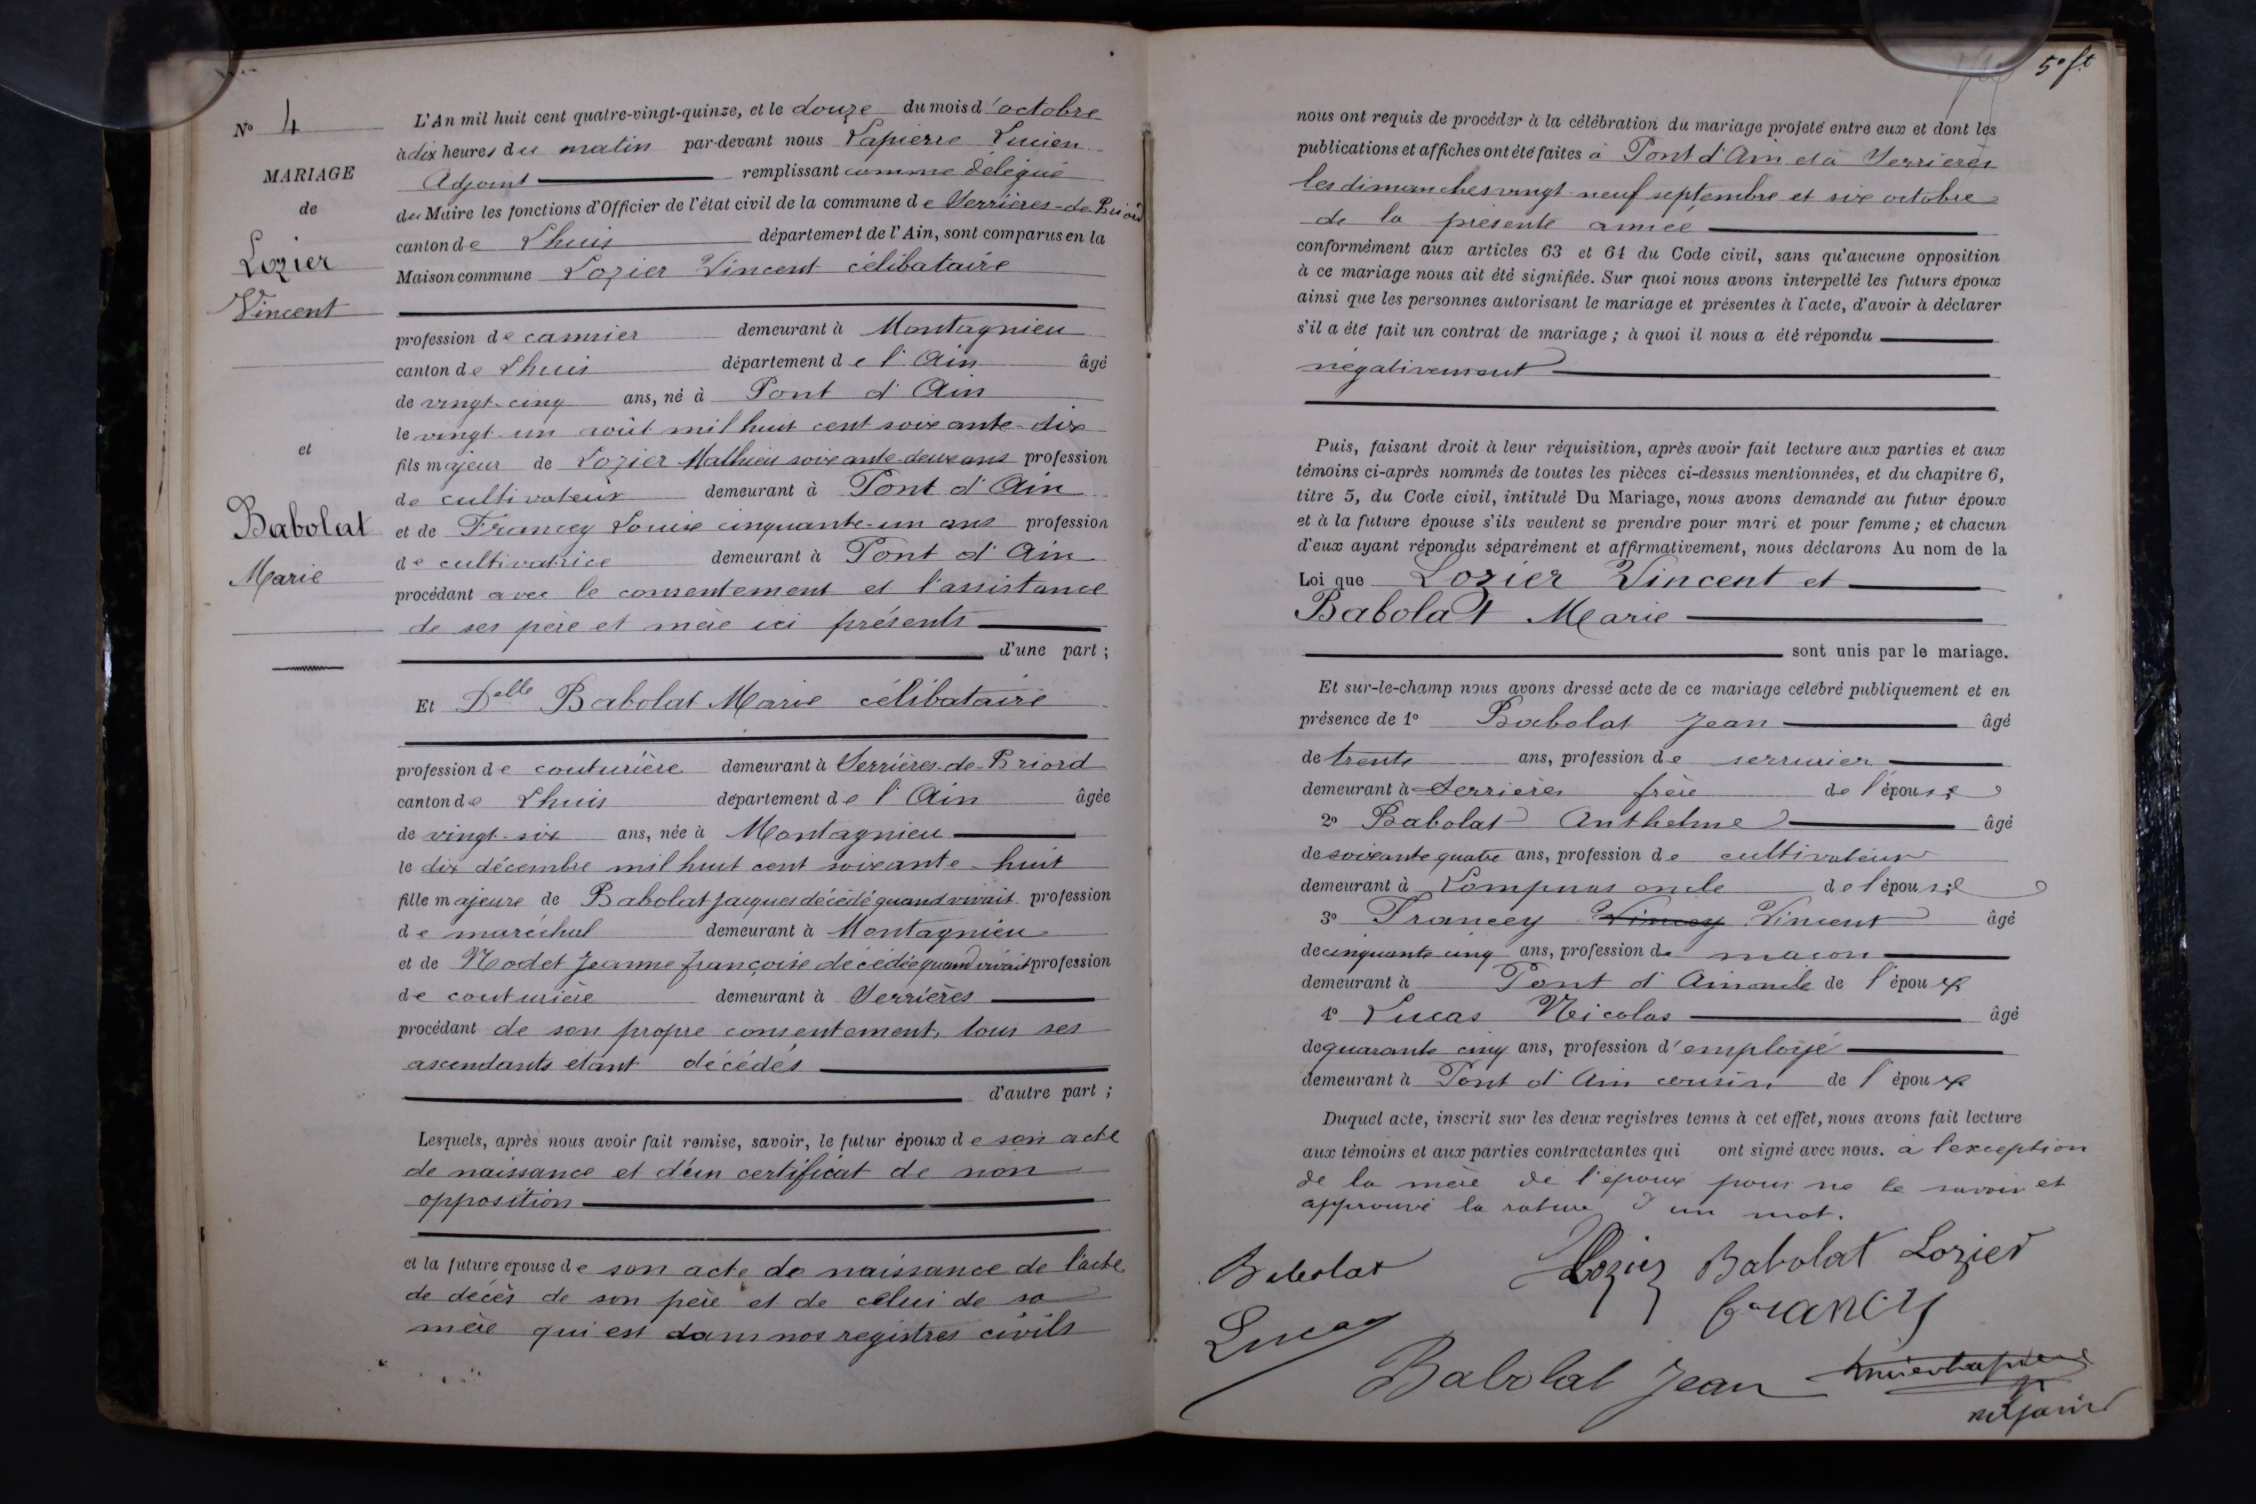 N° 4
MARIAGE
de
Lozier
Vincent
et
Babolat
Marie
L'An mil huit cent quatre-vingt-quinze, et le douze du mois d'octobre
à dix heures du matin par-devant nous Lapierre Lucien
Adjoint remplissant comme délégué
du Maire les fonctions d'Officier de l'état civil de la commune de Serrières-de-Briord
canton de Lhuis département de l'Ain, sont comparus en la
Maison commune Lozier Vincent célibataire
profession de cannier demeurant à Montagnieu
canton de Lhuis département de l'Ain âgé
de vingt-cinq ans, né à Pont d'Ain
le vingt-un août mil huit cent soixante-dix
fils majeur de Lozier Mathieu soixante-deux ans profession
de cultivateur demeurant à Pont d'Ain
et de Francey Louise cinquante-un ans profession
de cultivatrice demeurant à Pont d'Ain
procédant avec le consentement et l'assistance
de ses père et mère ici présents
d'une part ;
Et Delle Babolat Marie célibataire
profession de couturière demeurant à Serrières-de-Briord
canton de Lhuis département de l'Ain âgée
de vingt-six ans, née à Montagnieu
le dix décembre mil huit cent soixante-huit
fille majeure de Babolat Jacques décédé quand vivait profession
de maréchal demeurant à Montagnieu
et de Nodet Jeanne françoise décédée quand vivait profession
de couturière demeurant à Serrières
procédant de son propre consentement, tous ses
ascendants étant décédés
d'autre part ;
Lesquels, après nous avoir fait remise, savoir, le futur époux de son acte
de naissance et d'un certificat de non
opposition
et la future épouse de son acte de naissance de l'acte
de décès de son père et de celui de sa
mère qui est dans nos registres civils
5e ft
nous ont requis de procéder à la célébration du mariage projeté entre eux et dont les
publications et affiches ont été faites à Pont d'Ain et à Serrières
les dimanches vingt-neuf septembre et six octobre
de la présente année
conformément aux articles 63 et 64 du Code civil, sans qu'aucune opposition
à ce mariage nous ait été signifiée. Sur quoi nous avons interpellé les futurs époux
ainsi que les personnes autorisant le mariage et présentes à l'acte, d'avoir à déclarer
s'il a été fait un contrat de mariage ; à quoi il nous a été répondu
négativement
Puis, faisant droit à leur réquisition, après avoir fait lecture aux parties et aux
témoins ci-après nommés de toutes les pièces ci-dessus mentionnées, et du chapitre 6,
titre 5, du Code civil, intitulé Du Mariage, nous avons demandé au futur époux
et à la future épouse s'ils veulent se prendre pour mari et pour femme ; et chacun
d'eux ayant répondu séparément et affirmativement, nous déclarons Au nom de la
Loi que Lozier Vincent et
Babolat Marie
sont unis par le mariage.
Et sur-le-champ nous avons dressé acte de ce mariage célébré publiquement et en
présence de 1° Babolat Jean âgé
de trente ans, profession de serrurier
demeurant à Serrières frère de l'épouse
2° Babolat Anthelme âgé
de soixante quatre ans, profession de cultivateur
demeurant à Lompnas oncle de l'épouse
3° Francey Vincey Vincent âgé
de cinquante cinq ans, profession de maçon
demeurant à Pont d'Ain oncle de l'époux
4° Lucas Nicolas âgé
de quarante cinq ans, profession d'employé
demeurant à Pont d'Ain cousin de l'époux
Duquel acte, inscrit sur les deux registres tenus à cet effet, nous avons fait lecture
aux témoins et aux parties contractantes qui ont signé avec nous. à l'exception
de la mère de l'époux pour ne le savoir et
approuvé la rature d'un mot.
Babolat Lozier Babolat Lozier
Lucas Francey
Babolat Jean Lucien Lapierre
adjoint